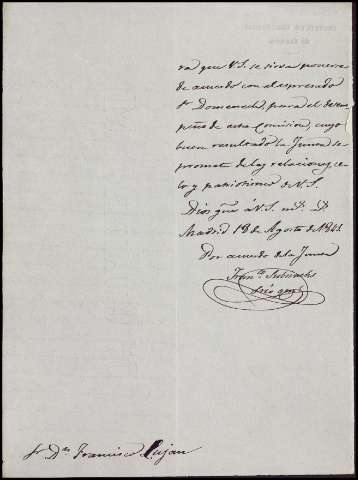 ra que V.S. se sirva ponerse
de acuerdo con el espresado
Sr. Domenech, para el desem-
peño de esta Comision, cuyo
buen resultado la Junta se
promete de las relaciones, ce-
lo y patriotismo de V.S.
Dios gue. á V.S. ms. as.
Madrid 18 de Agosto de 1841
Por acuerdo de la Junta
Franco.
Srio gral
Sr. Dn. Francisco Lujan